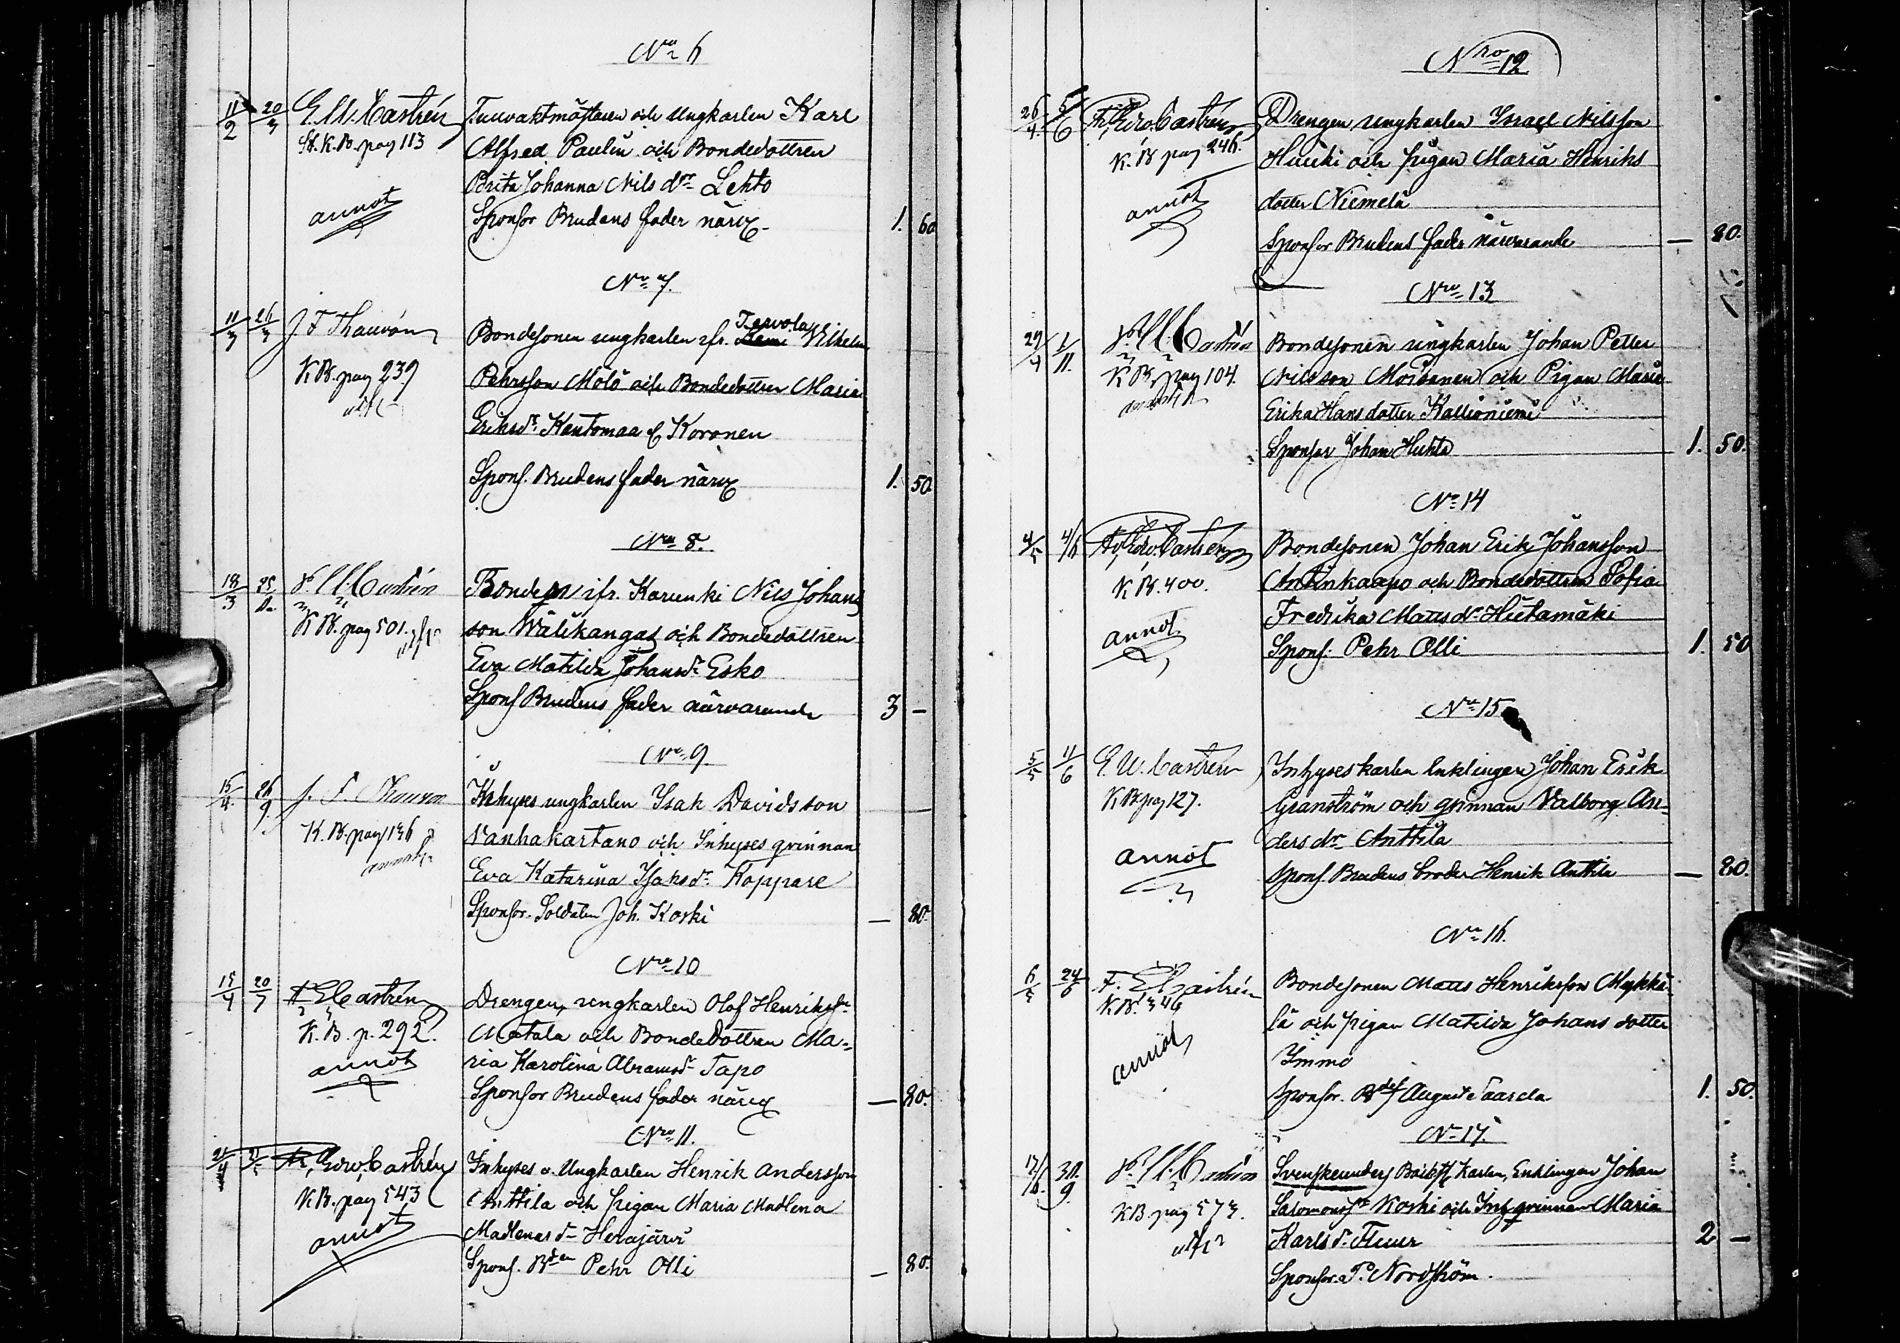 No 6
11/2 20/3 E. W. Castrén
St. K. B. pag 113
annot
Tullvaktmästaren och Ungkarlen Karl
Alfred Paulin och Bondedottren
Brita Johanna Nils dr Lehto
Sponsor Brudens fader närv. 1. 60
No 7.
11/3 26/3 J. F. Thauvón
K B. pag 239
Bondesonen ungkarlen ifr. Tervola Wilhelm
Pehrsson Mölö och Bondedottren Maria
Eriksdr. Kantomaa el Koronen
Spons. Brudens fader närv 1. 50
No 8.
18/3 Castrén
K B. pag 501.
Bonden ifr. Karunki Nils Johans
son Välikangas och Bondedottren
Eva Matilda Johansdr Esko
Spons Brudens fader närvarande 3 –
No 9.
15/4 26/9 J. F. Thauvón
K. B. pag 136
annot
Inhyses ungkarlen Isak Davidsson
Vanhakartano och Inhyses qvinnan
Eva Katarina Isaksdr Koppare
Sponsor. Soldaten Joh. Koski — 80.
Nro 10
15/4 20/7 Castrén
K. B. p. 292.
annot
Drengen, ungkarlen Olof Henrikssn
Matala och Bondedottren Ma-
ria Karolina Abramsdr Tapo
Sponsor Brudens fader närv — 80.
Nro 11.
Edv. Castrén
K B. pag 543
annot
Inhyses o. Ungkarlen Henrik Andersson
Anttila och pigan Maria Madlena
Madlenas dr Herajärvi
Spons. Bden Pehr Olli — 80.
Nro 12
26/4 5/6 Edv. Castrén
K. B pag 246.
annot
Drengen ungkarlen Israel Nilsson
och pigan Maria Henriks
dotter Niemelä
Sponsor Brudens fader närvarande — 80.
Nro 13
29/4 1/11. Castrén
K B. pag 104.
Bondesonen ungkarlen Johan Petter
Nilsson Moisanen och Pigan Maria
Erika Hansdotter Kallioniemi
Sponsor Johan Huhta 1. 50.
No 14
4/5 4/6 Edv. Castrén
K B. 400.
annot
Bondesonen Johan Erik Johansson
Antinkaapo och Bondedottren Sofia
Fredrika Matts dr Hietamäki
Spons. Pehr Olli 1. 50
No 15
5/5 11/6 E. W. Castrén
K B pag 127.
annot
Inhyseskarlen Enklingen Johan Erik
Granström och qvinnan Valborg An-
ders dr Anttila
Spons Brudens broder Henrik Anttila — 80.
No 16.
6/5 24/6 F. E. Castrén
K B. 346
annot
Bondesonen Matts Henriksson Mykkä-
lä och pigan Matilda Johans dotter
Immo
Sponsor. August Taarela 1. 50.
No 17.
30/9 Castrén
K B pag 573.
Svenskeunders karlen, Enklingen Johan
Salomonssn Koski och Inh qvinnan Maria
Karls dr 2 —
Sponsor. P. Nordström.